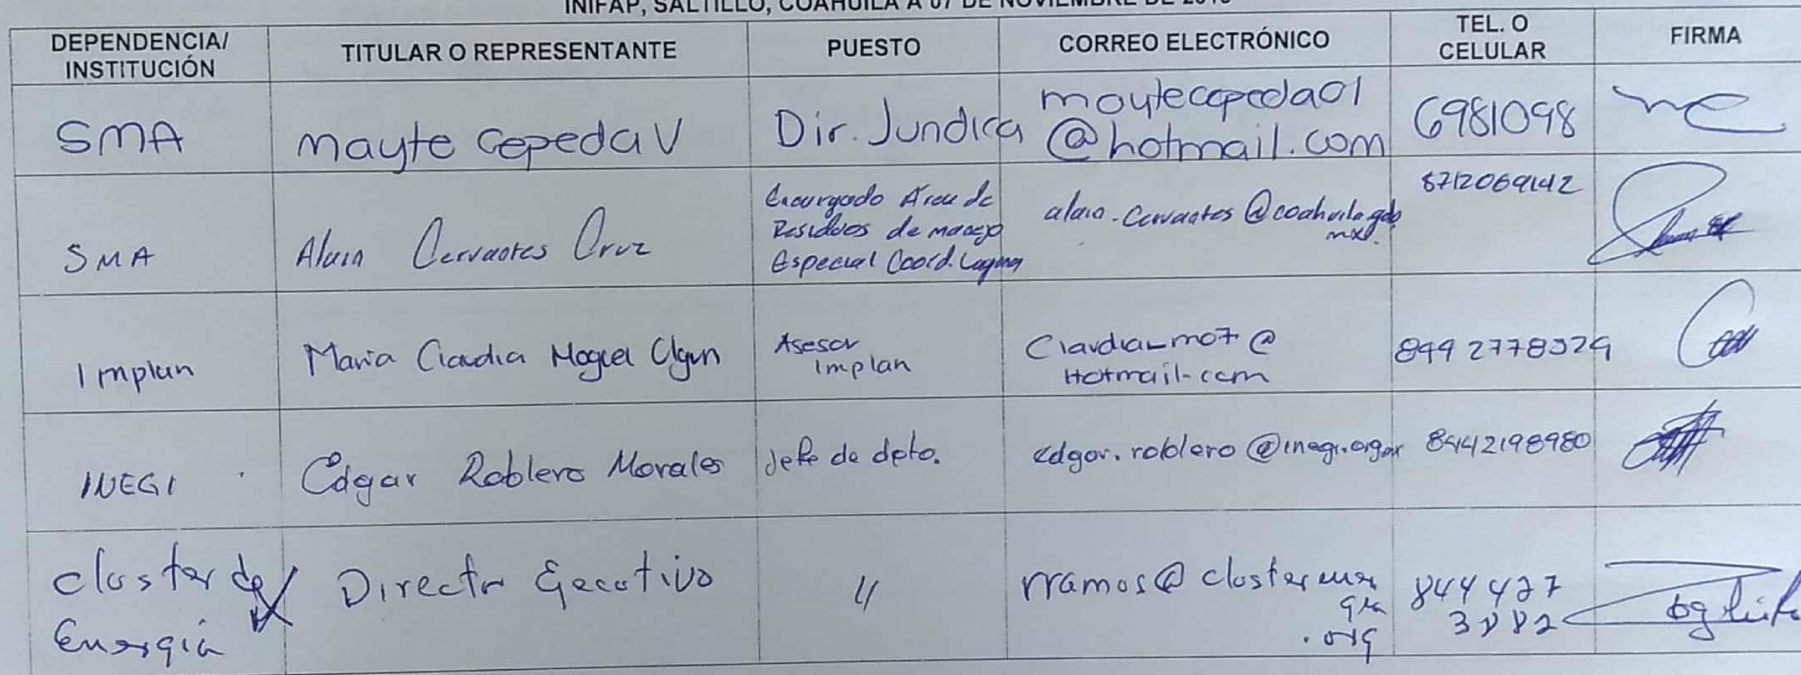 INIFAP, SALTILLO, COAHUILA A 07 DE NOVIEMBRE DE
DEPENDENCIA/ INSTITUCIÓN TITULAR O REPRESENTANTE PUESTO CORREO ELECTRÓNICO TEL. O CELULAR FIRMA
SMA mayte cepeda V Dir. Jurídica maytecepeda01
@hotmail.com 6981098
SMA Alain Cervantes Cruz Encargado Área de
Residuos de manejo
Especial Coord. Laguna alain.cervantes@coahuila.gob
mx 8712069142
Implan Maria Claudia Moguel Asesor
Implan Claudia_mo7@
Hotmail.com
INEGI Edgar Roblero Morales Jefe de depto. edgar.roblero@inegi.org 8442198980
Cluster de
Energía Director Ejecutivo 11 rramos@clusterener
gia
.org 844 427